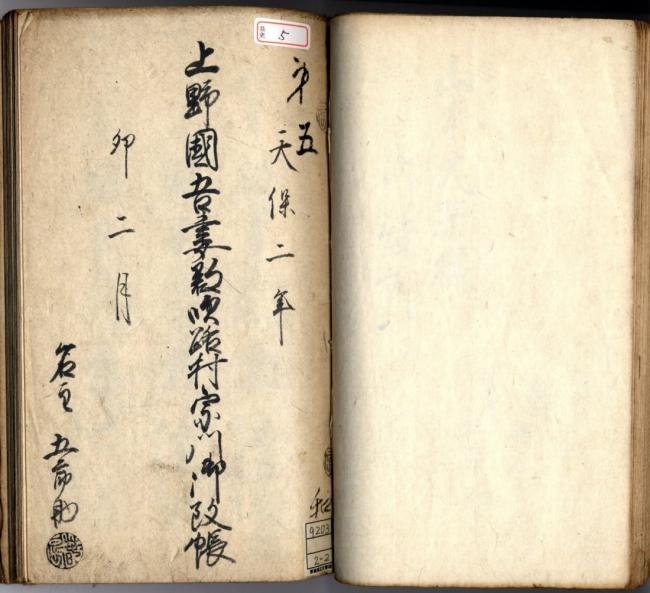 5
第五
天保二年
上野國吾妻郡吹路村宗門御改帳
卯二月
名主 五郎助
9203
2-2